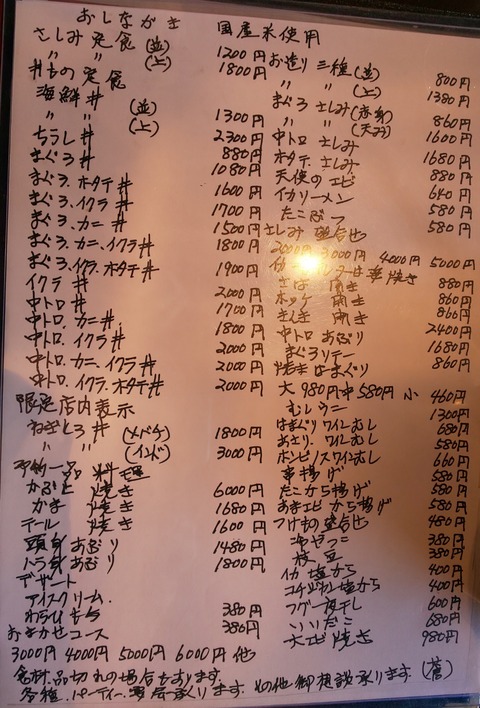 おしながき
国産米使用
さしみ定食(並) 1200円
〃 〃 (上) 1800円
丼もの定食
海鮮丼 (並) 1300円
〃 〃 (上) 2300円
ちらし丼 880円
まぐろ丼 1080円
まぐろ、ホタテ丼 1600円
まぐろ、イクラ丼 1700円
まぐろ、カニ丼 1500円
まぐろ、カニ、イクラ丼 1800円
まぐろ、イクラ、ホタテ丼 1900円
イクラ丼 2000円
中トロ丼 1700円
中トロ、カニ丼 1800円
中トロ、イクラ丼 2000円
中トロ、カニ、イクラ丼 2000円
中トロ、イクラ、ホタテ丼 2000円
限定店内表示
ねぎとろ丼 (メバチ) 1800円
〃 〃 (インド) 3000円
予約一品料理
かぶと焼き 6000円
かま焼き 1680円
テール焼き 1600円
頭身あぶり 1480円
ハラ身あぶり 1800円
デザート
アイスクリーム 380円
わらびもち 380円
おまかせコース
3000円 4000円 5000円 6000円 他
お造り三種(並) 800円
〃 〃 (上) 1380円
まぐろさしみ(赤身) 860円
〃 〃 (天み) 1600円
中トロさしみ 1680円
ホタテさしみ 880円
天使のエビ 640円
イカソーメン 580円
たこぶつ 580円
さしみ盛合せ
2000円 3000円 4000円 5000円
焼き 880円
さば開き 860円
ホッケ開き 860円
きんき開き 2400円
中トロあぶり 1680円
まぐろソテー 860円
焼きはまぐり
大980円 中580円 小460円
むしウニ 1300円
はまぐりワインむし 680円
あさりワインむし 580円
ホンビノスワインむし 660円
串揚げ 580円
たこから揚げ 580円
あまエビから揚げ 580円
つけもの盛合せ 480円
冷やっこ 380円
枝豆 380円
イカ塩から 400円
塩から 400円
フグ一夜干し 600円
いいだこ 680円
大エビ焼き 980円
食材、品切れの場合もあります。
各種、パーティー、宴会承ります。その他御相談承ります。